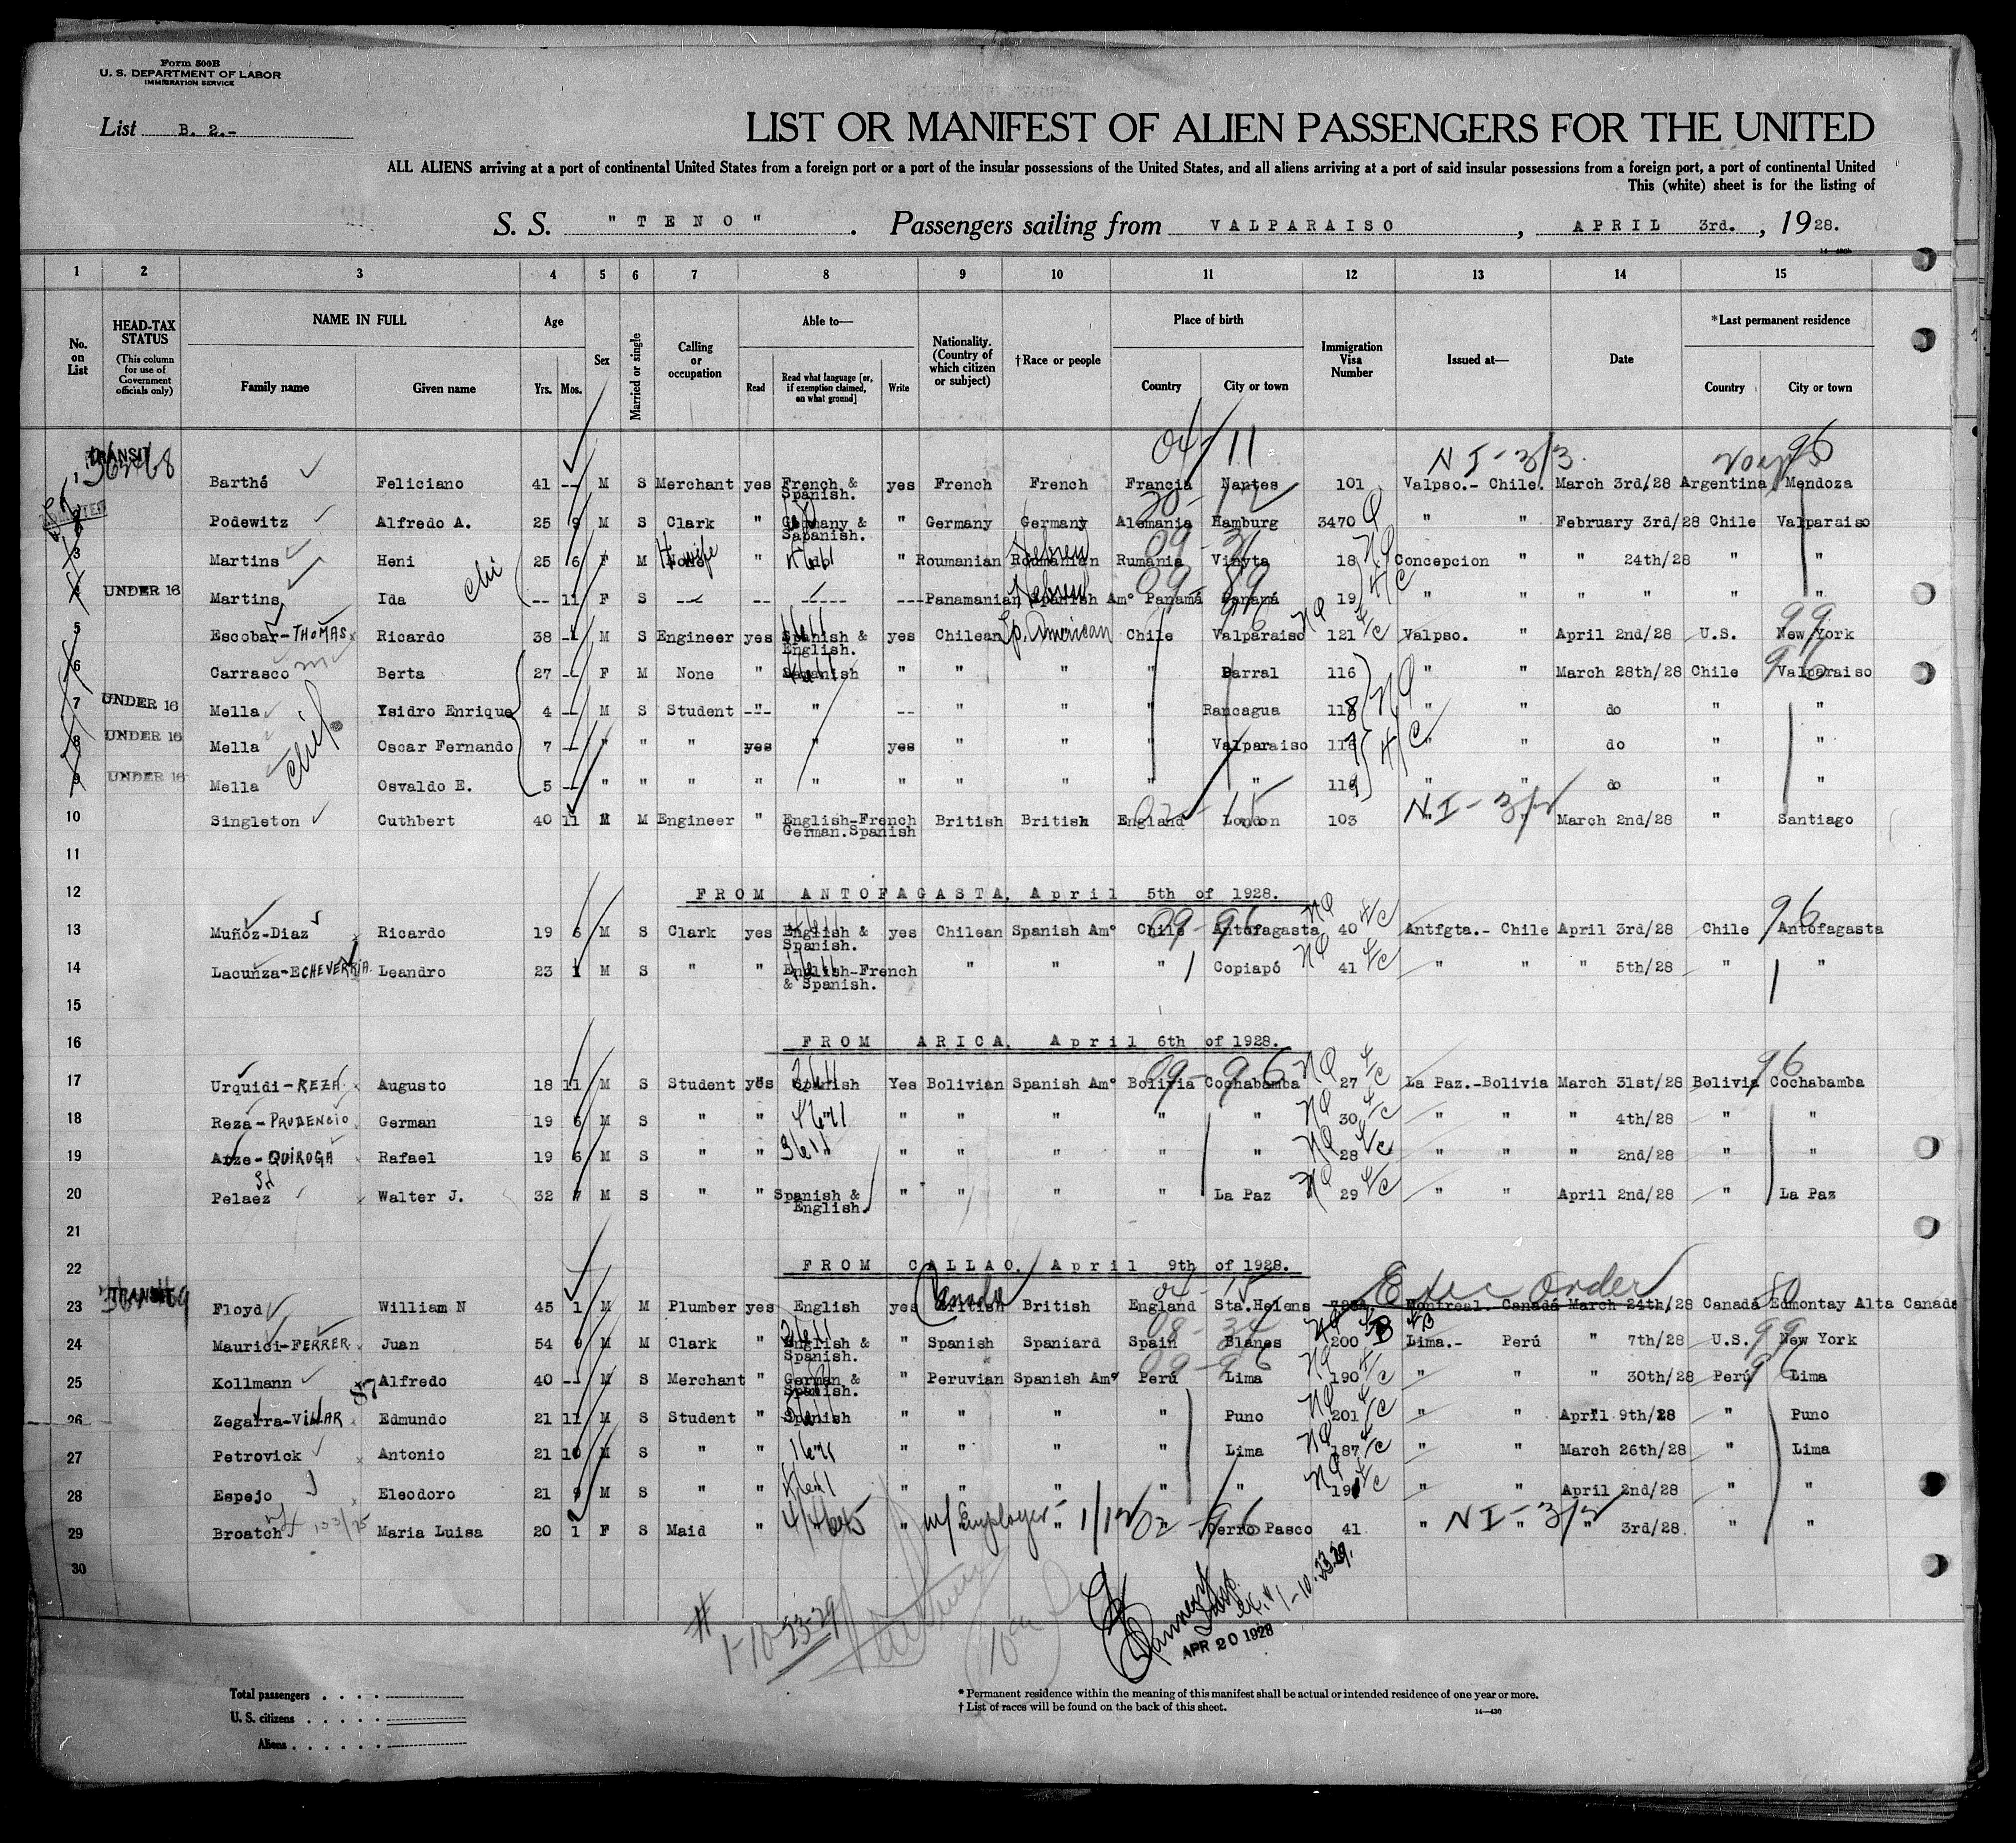 Form 500B
U. S. DEPARTMENT OF LABOR
IMMIGRATION SERVICE
List B. 2.-
LIST OR MANIFEST OF ALIEN PASSENGERS FOR THE UNITED
ALL ALIENS arriving at a port of continental United States from a foreign port or a port of the insular possessions of the United States, and all aliens arriving at a port of said insular possessions from a foreign port, a port of continental United
This (white) sheet is for the listing of
S. S. "TENO". Passengers sailing from VALPARAISO, APRIL 3rd., 1928.
1 2 3 4 5 6 7 8 9 10 11 12 13 14 15
No. on List
HEAD-TAX STATUS (This column for use of Government officials only)
NAME IN FULL Family name Given name
Age Yrs. Mos.
Sex
Married or single
Calling or occupation
Able to— Read Read what language [or, if exemption claimed, on what ground] Write
Nationality. (Country of which citizen or subject)
†Race or people
Place of birth Country City or town
Immigration Visa Number
Issued at—
Date
*Last permanent residence Country City or town
04/11 NI-3/3 96
TRANSIT
1 Barthé Feliciano 41 -- M S Merchant yes French & Spanish. yes French French Francia Nantes 101 Valpso.- Chile. March 3rd/28 Argentina Mendoza
2 Podewitz Alfredo A. 25 9 M S Clark " Germany & Sapanish. " Germany Germany Alemania Hamburg 3470 " " February 3rd/28 Chile Valparaiso
3 Martins Heni 25 6 F M None H wife " do " Roumanian Roumanian Hebrew Rumania Vinyta 18 Concepcion " " 24th/28 " "
4 UNDER 16 Martins Ida -- 11 F S -- -- ----- --- Panamanian Spanish Am° Hebrew Panamá Panamá 19 " " " " " "
5 Escobar-THOMAS Ricardo 38 -- M S Engineer yes Spanish & English. yes Chilean Sp. American Chile Valparaiso 121 Valpso. " April 2nd/28 U.S. New York 99
6 Carrasco Berta 27 -- F M None " Sapanish " " " " Parral 116 " " March 28th/28 Chile Valparaiso 96
7 UNDER 16 Mella Ysidro Enrique 4 -- M S Student --- " -- " " " Rancagua 118 " " do " "
8 UNDER 16 Mella Oscar Fernando 7 -- " " " yes " yes " " " Valparaiso 117 " " do " "
9 UNDER 16 Mella Osvaldo E. 5 -- " " " " " " " " " " 119 " " do " "
10 Singleton Cuthbert 40 11 M M Engineer " English-French German.Spanish British British England London 103 NI-3/2 March 2nd/28 " Santiago
11
12 FROM ANTOFAGASTA, April 5th of 1928.
13 Muñoz-Diaz Ricardo 19 6 M S Clark yes English & Spanish. yes Chilean Spanish Am° Chile Antofagasta 40 Antfgta.- Chile April 3rd/28 Chile Antofagasta 96
14 Lacunza-ECHEVERRIA. Leandro 23 1 M S " " English-French & Spanish. " " " Copiapó 41 " " " 5th/28 " "
15
16 FROM ARICA, April 6th of 1928.
17 Urquidi-REZA Augusto 18 11 M S Student yes Spanish Yes Bolivian Spanish Am° Bolivia Cochabamba 27 La Paz.-Bolivia March 31st/28 Bolivia Cochabamba 96
18 Reza-PRUDENCIO German 19 6 M S " " " " " " " 30 " " " 4th/28 " "
19 Arze-QUIROGA Rafael 19 6 M S " " " " " " " 28 " " " 2nd/28 " "
20 Pelaez Walter J. 32 7 M S " " Spanish & English. " " " " La Paz 29 " " April 2nd/28 " La Paz
21
22 FROM CALLAO, April 9th of 1928.
23 TRANSIT Floyd William N 45 1 M M Plumber yes English yes British Canada British England Sta. Helens Exec Order Montreal. Canadá March 24th/28 Canadá Edmontay Alta Canada
24 Maurici-FERRER Juan 54 9 M M Clark " English & Spanish. " Spanish Spaniard Spain Blanes 200 Lima.- Perú " 7th/28 U.S. New York 99
25 Kollmann Alfredo 40 -- M S Merchant " German & Spanish. " Peruvian Spanish Am° Perú Lima 190 " " " 30th/28 Perú Lima 96
26 Zegarra-VILLAR Edmundo 21 11 M S Student " Spanish " " " " Puno 201 " " April 9th/28 " Puno
27 Petrovick Antonio 21 10 M S " " " " " " Lima 187 " " March 26th/28 " Lima
28 Espejo Eleodoro 21 9 M S " " " " " " " " " April 2nd/28 " "
29 Broatch Maria Luisa 20 1 F S Maid " " w/ Employer " Cerro Pasco 41 " NI-3/2 " 3rd/28. " "
30
1-10-23-29
APR 20 1928
Total passengers
U. S. citizens
Aliens
* Permanent residence within the meaning of this manifest shall be actual or intended residence of one year or more.
† List of races will be found on the back of this sheet.
14—430